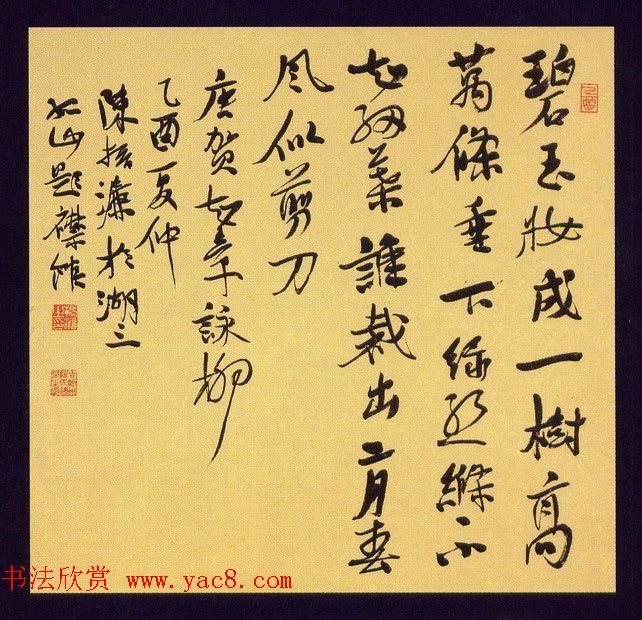 碧玉妝成一樹高
萬條垂下綠絲絛不
知細葉誰裁出二月春
風似剪刀
唐賀知章詠柳
乙酉夏仲
陳振濂於湖三
山題襟館
书法欣赏 www.yac8.com